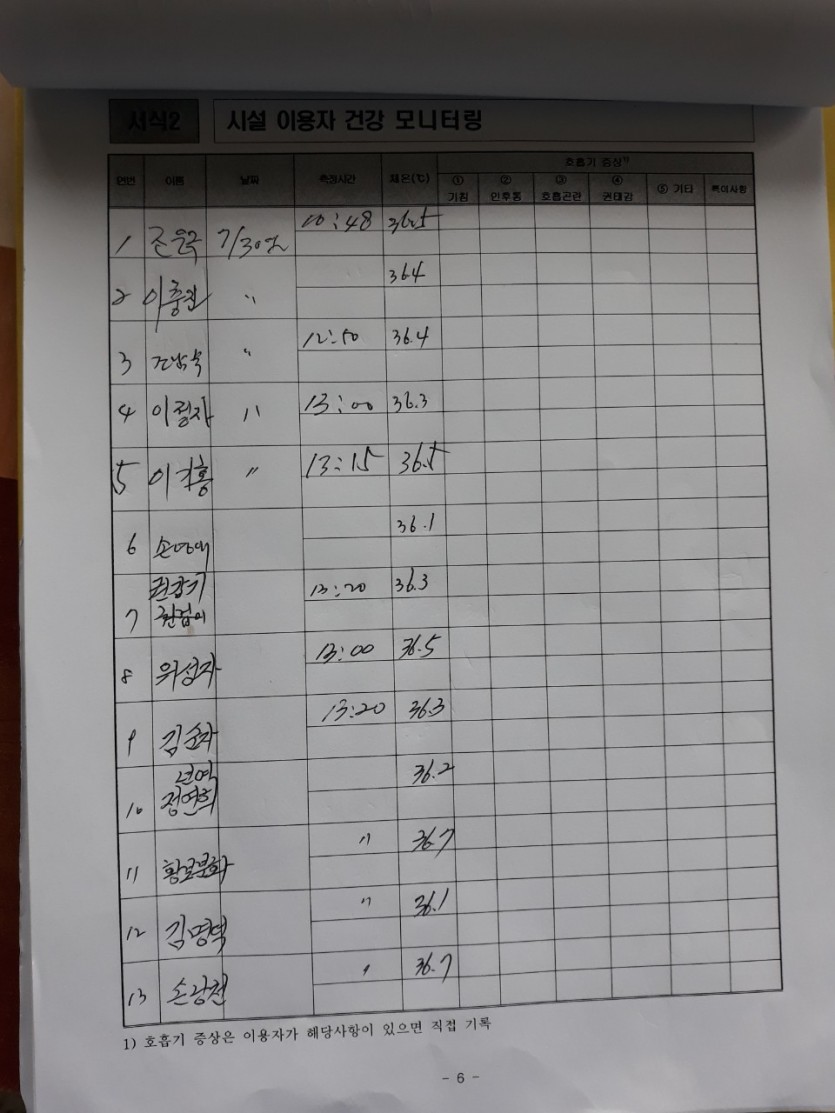 서식2 시설 이용자 건강 모니터링
연번 이름 날짜 측정시간 체온(℃) 호흡기 증상1)
① 기침 ② 인후통 ③ 호흡곤란 ④ 권태감 ⑤ 기타 특이사항
1 7/30 10:48 36.5
2 이충진 〃 36.4
3 〃 12:50 36.4
4 이정자 〃 13:00 36.3
5 〃 13:15 36.5
6 손영애 36.1
7 13:20 36.3
8 위성자 13:00 36.5
9 김순자 13:20 36.3
10 정연희 36.2
11 황보분화 〃 36.7
12 김명덕 〃 36.1
13 손광천 〃 36.7
1) 호흡기 증상은 이용자가 해당사항이 있으면 직접 기록
- 6 -